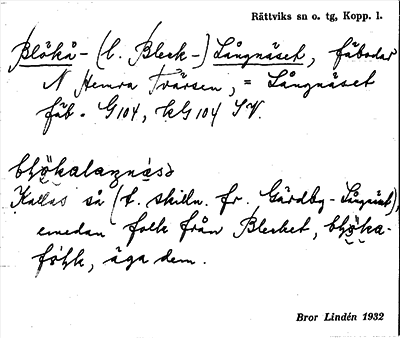 Rättviks sn o. tg, Kopp. l.
Blökå- (l. Bleck-) Långnäset, fäbodar
N Hemra Trärsen, = Långnäset
fäb. G 104, kG 104 SV.
blökalaŋnäsə
Kallas så (t. skilln. fr. Gärdby-Långnäset),
emedan folk från Blecket, blöka-
fölk, äga dem.
Bror Lindén 1932